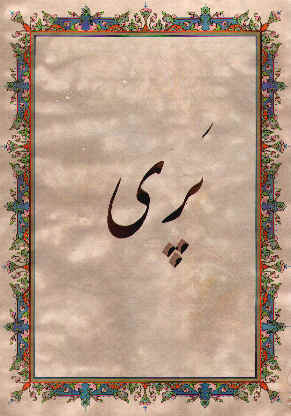 پَری